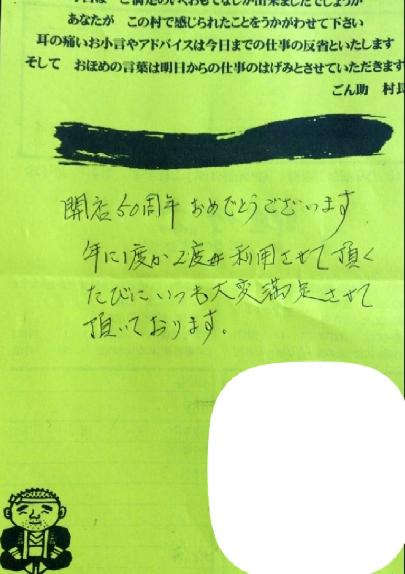 ご満足のいくおもてなしが出来ましたでしょうか
あなたが この村で感じられたことをうかがわせて下さい
耳の痛いお小言やアドバイスは今日までの仕事の反省といたします
そして おほめの言葉は明日からの仕事のはげみとさせていただきます
ごん助 村長
開店50周年 おめでとうございます
年に1度か2度 利用させて頂く
たびにいつも大変満足させて
頂いております。